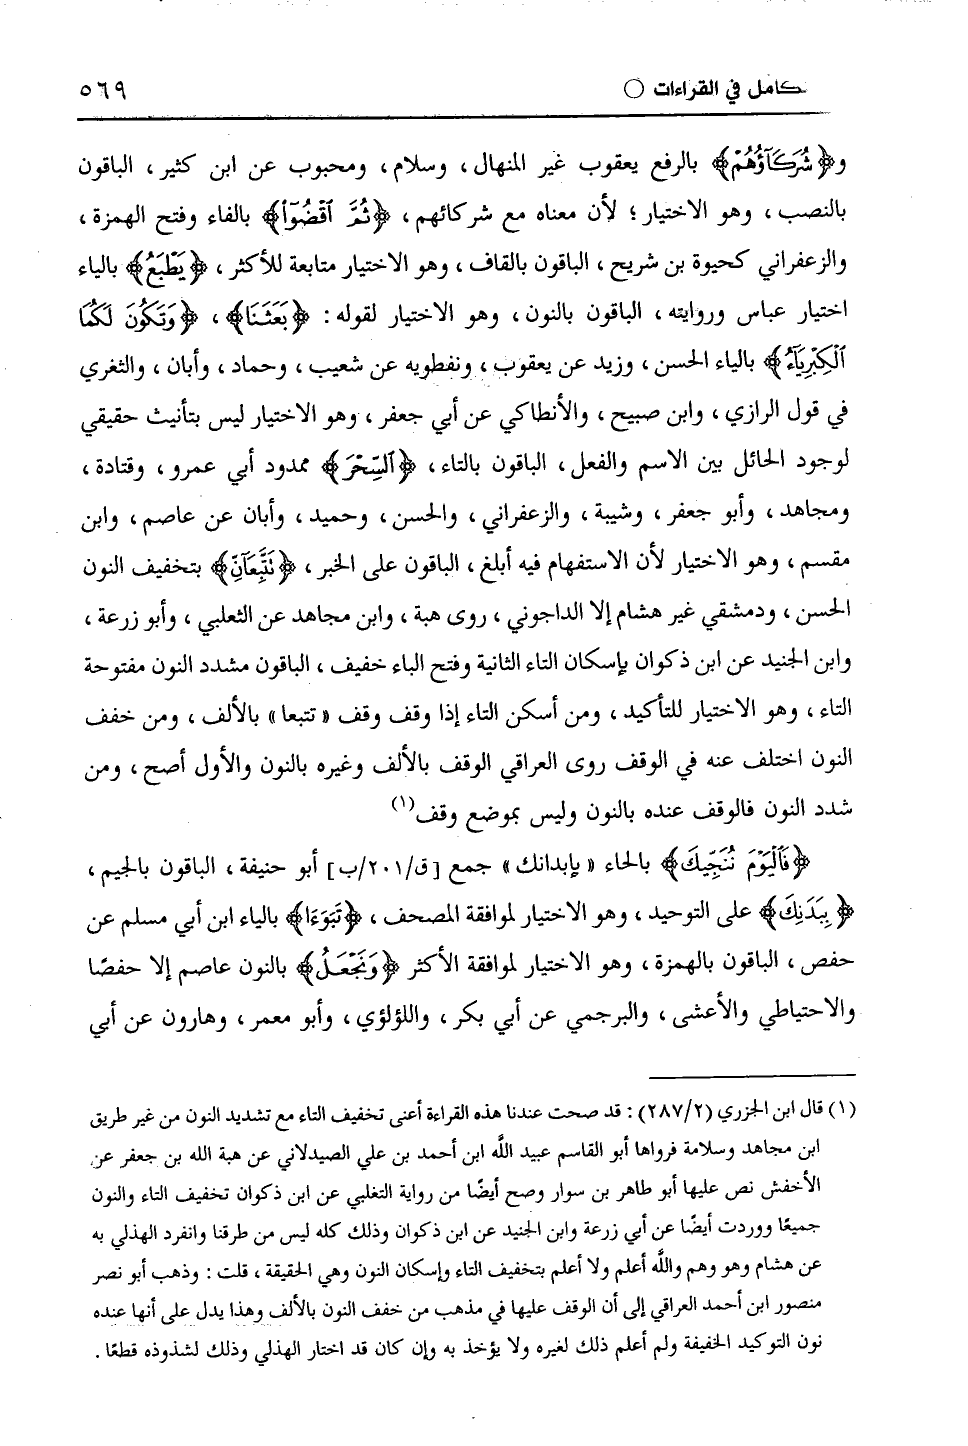 كامل في القراءات ○ ٥٦٩
و﴿شُرَكَآؤُهُمْ﴾ بالرفع يعقوب غير المنهال، وسلام، ومحبوب عن ابن كثير، الباقون
بالنصب، وهو الاختيار؛ لأن معناه مع شركائهم، ﴿ثُمَّ ٱقْضُوٓاْ﴾ بالفاء وفتح الهمزة،
والزعفراني كحيوة بن شريح، الباقون بالقاف، وهو الاختيار متابعة للأكثر، ﴿يَطْبَعُ﴾ بالياء
اختيار عباس وروايته، الباقون بالنون، وهو الاختيار لقوله: ﴿بَعَثْنَا﴾، ﴿وَتَكُونَ لَكُمَا
ٱلْكِبْرِيَآءُ﴾ بالياء الحسن، وزيد عن يعقوب، ونفطويه عن شعيب، وحماد، وأبان، والثغري
في قول الرازي، وابن صبيح، والأنطاكي عن أبي جعفر، وهو الاختيار ليس بتأنيث حقيقي
لوجود الحائل بين الاسم والفعل، الباقون بالتاء، ﴿ٱلسِّحْرَ﴾ ممدود أبي عمرو، وقتادة،
ومجاهد، وأبو جعفر، وشيبة، والزعفراني، والحسن، وحميد، وأبان عن عاصم، وابن
مقسم، وهو الاختيار لأن الاستفهام فيه أبلغ، الباقون على الخبر، ﴿تَتَّبِعَآنِّ﴾ بتخفيف النون
الحسن، ودمشقي غير هشام إلا الداجوني، روى هبة، وابن مجاهد عن الثعلبي، وأبو زرعة،
وابن الجنيد عن ابن ذكوان بإسكان التاء الثانية وفتح الباء خفيف، الباقون مشدد النون مفتوحة
التاء، وهو الاختيار للتأكيد، ومن أسكن التاء إذا وقف وقف «تتبعا» بالألف، ومن خفف
النون اختلف عنه في الوقف روى العراقي الوقف بالألف وغيره بالنون والأول أصح، ومن
شدد النون فالوقف عنده بالنون وليس بموضع وقف(١)
﴿فَٱلْيَوْمَ نُنَجِّيكَ﴾ بالحاء «بإبدانك» جمع [ق/٢٠١/ب] أبو حنيفة، الباقون بالجيم،
﴿بِبَدَنِكَ﴾ على التوحيد، وهو الاختيار لموافقة المصحف، ﴿تَبَوَّءَا﴾ بالياء ابن أبي مسلم عن
حفص، الباقون بالهمزة، وهو الاختيار لموافقة الأكثر ﴿وَنَجْعَلُ﴾ بالنون عاصم إلا حفصًا
والاحتياطي والأعشى، والبرجمي عن أبي بكر، واللؤلؤي، وأبو معمر، وهارون عن أبي
(١) قال ابن الجزري (٢/٢٨٧): قد صحت عندنا هذه القراءة أعنى تخفيف التاء مع تشديد النون من غير طريق
ابن مجاهد وسلامة فرواها أبو القاسم عبيد اللَّه ابن أحمد بن علي الصيدلاني عن هبة الله بن جعفر عن
الأخفش نص عليها أبو طاهر بن سوار وصح أيضًا من رواية التغلبي عن ابن ذكوان تخفيف التاء والنون
جميعًا ووردت أيضًا عن أبي زرعة وابن الجنيد عن ابن ذكوان وذلك كله ليس من طرقنا وانفرد الهذلي به
عن هشام وهو وهم واللَّه أعلم ولا أعلم بتخفيف التاء وإسكان النون وهي الحقيقة، قلت: وذهب أبو نصر
منصور ابن أحمد العراقي إلى أن الوقف عليها في مذهب من خفف النون بالألف وهذا يدل على أنها عنده
نون التوكيد الخفيفة ولم أعلم ذلك لغيره ولا يؤخذ به وإن كان قد اختار الهذلي وذلك لشذوذه قطعًا.